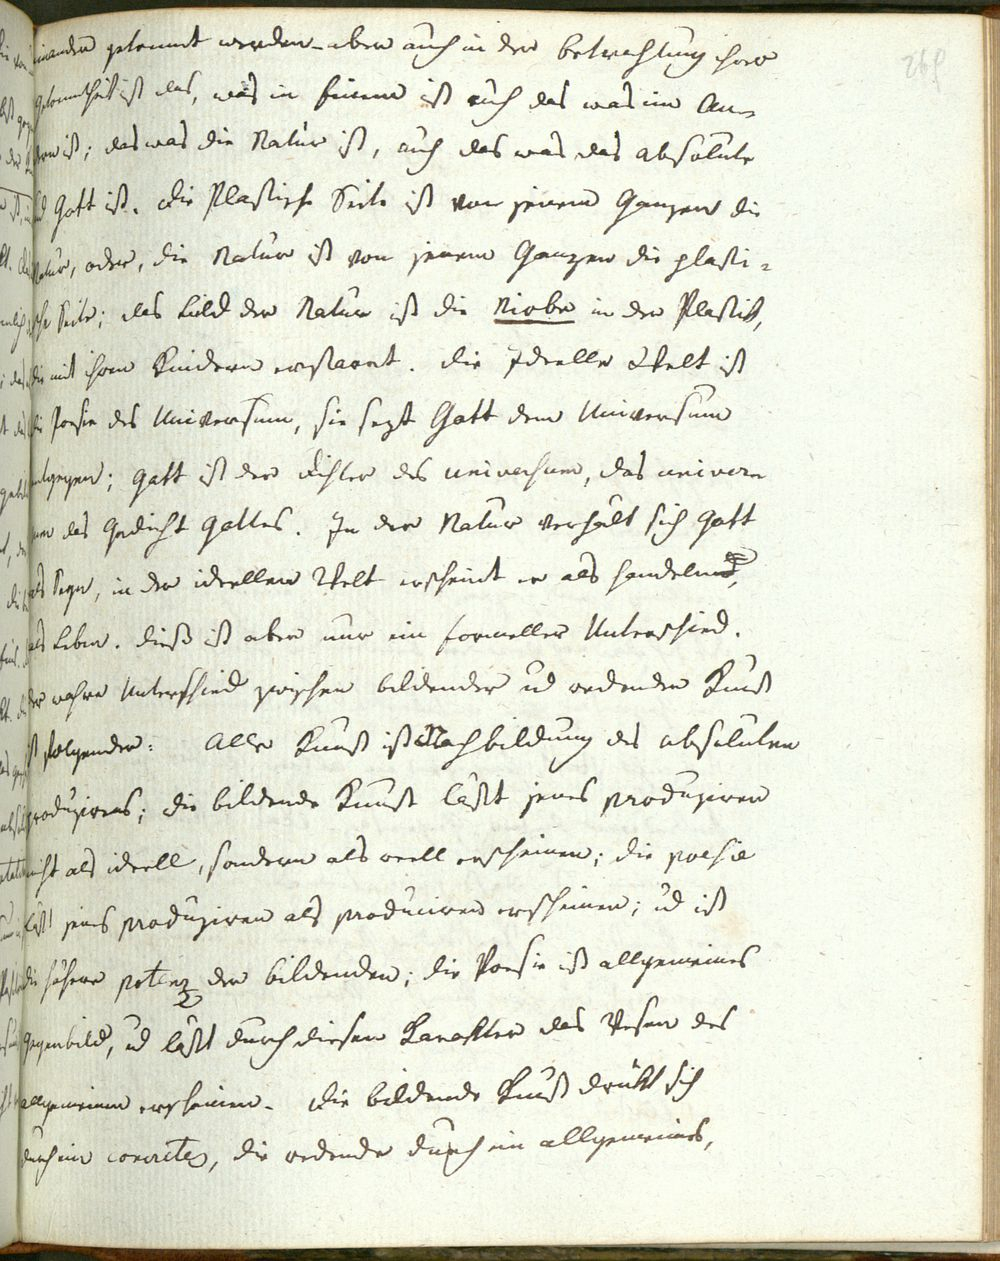 269
einander getrennt werden – aber auch in der Betrachtung ihrer
Getrenntheit ist das, was in Einem ist auch das was im An-
dern ist; das was die Natur ist, auch das was das absolute
ud Gott ist. Die Plastische Seite ist von jenem Ganzen die
Natur, oder, die Natur ist von jenem Ganzen die plasti-
sche Seite; das Bild der Natur ist die Niobe in der Plastik,
die mit ihren Kindern erstarrt. Die Ideelle Welt ist
die Poesie des Universum, sie sezt Gott dem Universum
entgegen; Gott ist der Dichter des universum, das univer-
sum das Gedicht Gottes. In der Natur verhält sich Gott
als Seyn, in der ideellen Welt erscheint er als handelnd,
als Leben. Dieß ist aber nur ein formeller Unterschied.
Der wahre Unterschied zwischen bildender ud redender Kunst
ist folgender: Alle Kunst ist Nachbildung des absoluten
produzirens; die bildende Kunst läßt jenes produziren
nicht als ideell, sondern als reell erscheinen; die poesie
läßt jenes produziren als produciren erscheinen; ud ist
die höhere potenz der bildenden; die Poesie ist allgemeines
Gegenbild, ud läßt durch diesen Karakter das Wesen des
allgemeinen erscheinen. Die bildende Kunst drükt sich
durch ein concretes, die redende durch ein allgemeines,